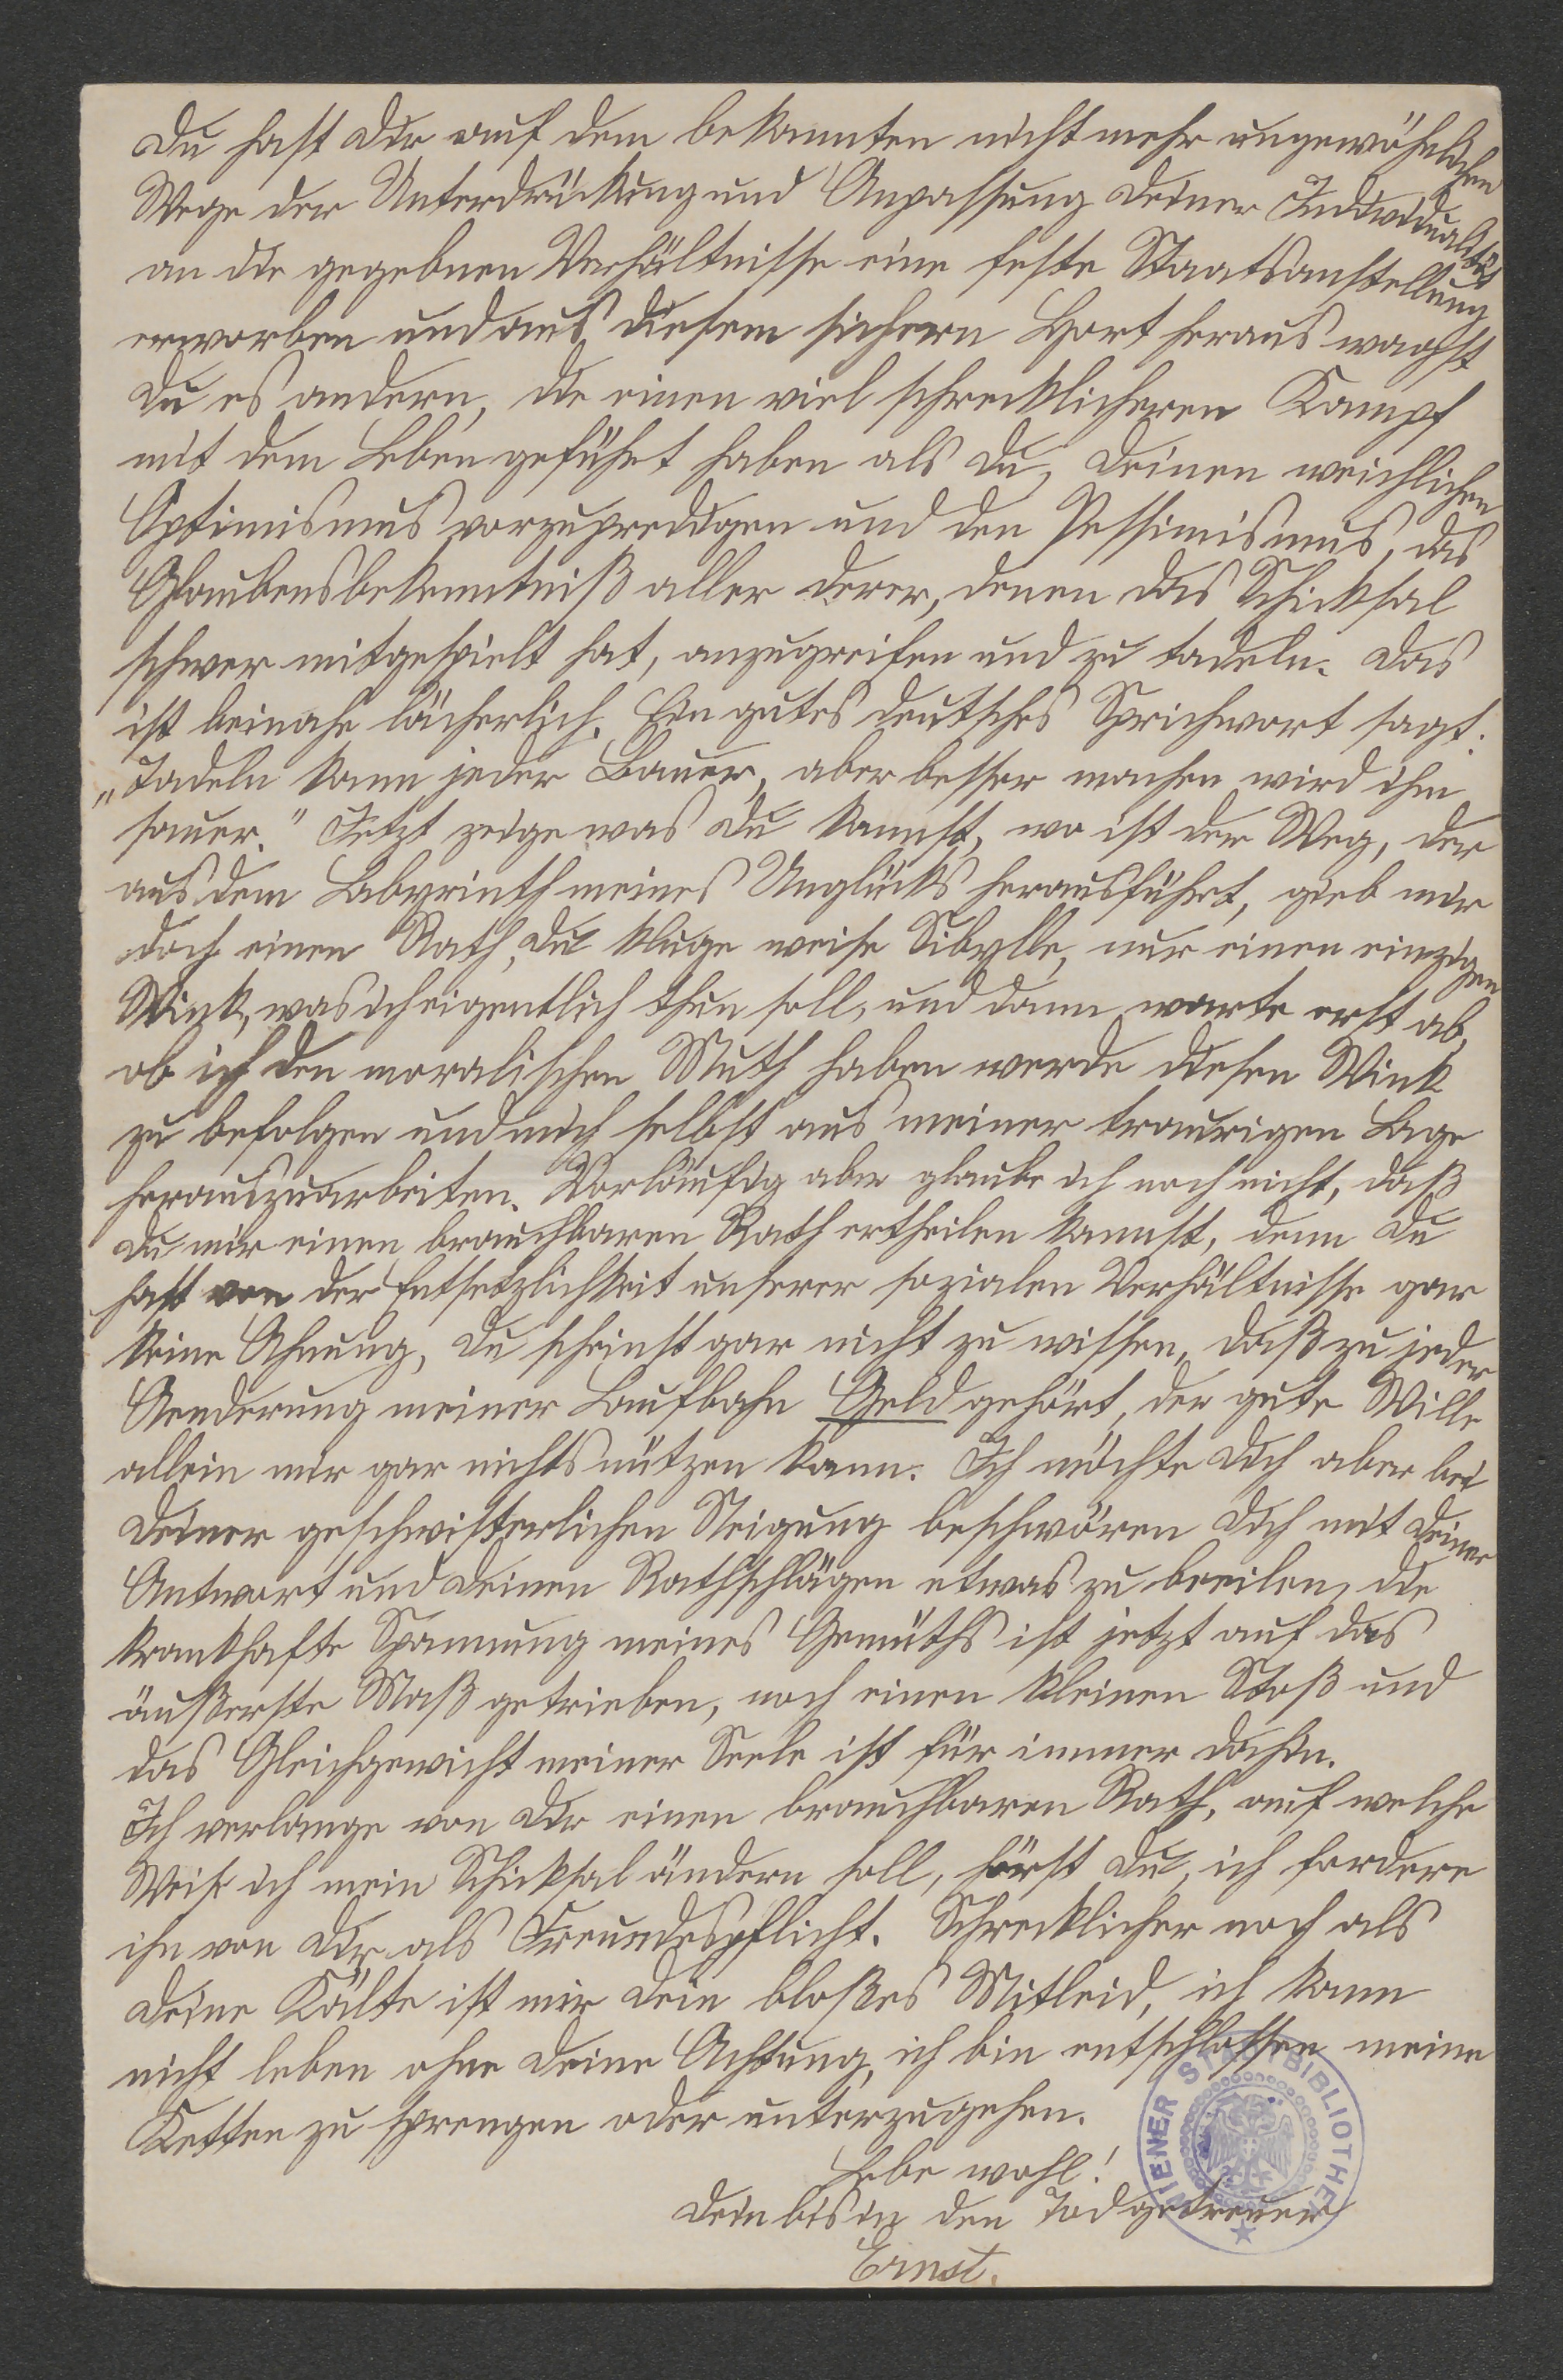 Du hast Dir auf dem bekannten nicht mehr ungewöhnlichen
Wege der Unterdrückung und Anpassung Deiner Individualität
an die gegebnen Verhältnisse eine feste Staatsanstellung
erworben und aus diesem sichern Hort heraus wagst
Du es andern, die einen viel schrecklicheren Kampf
mit dem Leben geführt haben als Du, Deinen weichlichen
Optimismus vorzupredigen und den Pessimismus, das
Glaubensbekenntniß aller derer, denen das Schicksal
schwer mitgespielt hat, anzugreifen und zu tadeln. Das
ist beinahe lächerlich. Ein gutes deutsches Sprichwort sagt:
„Tadeln kann jeder Bauer, aber besser machen wird ihm
sauer.“ Jetzt zeige was Du kannst, wo ist der Weg, der
aus dem Labyrinth meines Unglücks herausführt, gieb mir
doch einen Rath, Du kluge weise Sibylle, nur einen einzigen
Wink, was ich eigentlich thun soll, und dann warte erst ab,
ob ich den moralischen Muth haben werde diesen Wink
zu befolgen und mich selbst aus meiner traurigen Lage
herauszuarbeiten. Vorläufig aber glaube ich noch nicht, daß
Du mir einen brauchbaren Rath ertheilen kannst, denn Du
hast von der Entsetzlichkeit unserer sozialen Verhältnisse gar
keine Ahnung, Du scheinst gar nicht zu wissen, daß zu jeder
Aenderung meiner Laufbahn Geld gehört, der gute Wille
allein mir gar nichts nützen kann. Ich möchte Dich aber bei
Deiner geschwisterlichen Neigung beschwören Dich mit Deiner
Antwort und Deinen Rathschlägen etwas zu beeilen, die
krankhafte Spannung meines Gemüths ist jetzt auf das
äußerste Maß getrieben, noch einen kleinen Stoß und
das Gleichgewicht meiner Seele ist für immer dahin.
Ich verlange von Dir einen brauchbaren Rath, auf welche
Weise ich mein Schicksal ändern soll, hörst Du, ich fordere
ihn von Dir als Freundespflicht. Schrecklicher noch als
Deine Kälte ist mir Dein bloßes Mitleid, ich kann
nicht leben ohne Deine Achtung, ich bin entschlossen meine
Ketten zu sprengen oder unterzugehen.
Lebe wohl!
Dein bis in den Tod getreuer
Ernst.
WIENER STADTBIBLIOTHEK